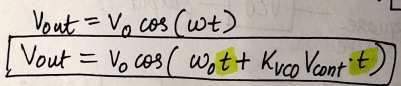 Vout = V₀ cos (ωt)
Vout = V₀ cos ( ω₀t + Kvco Vcont·t)